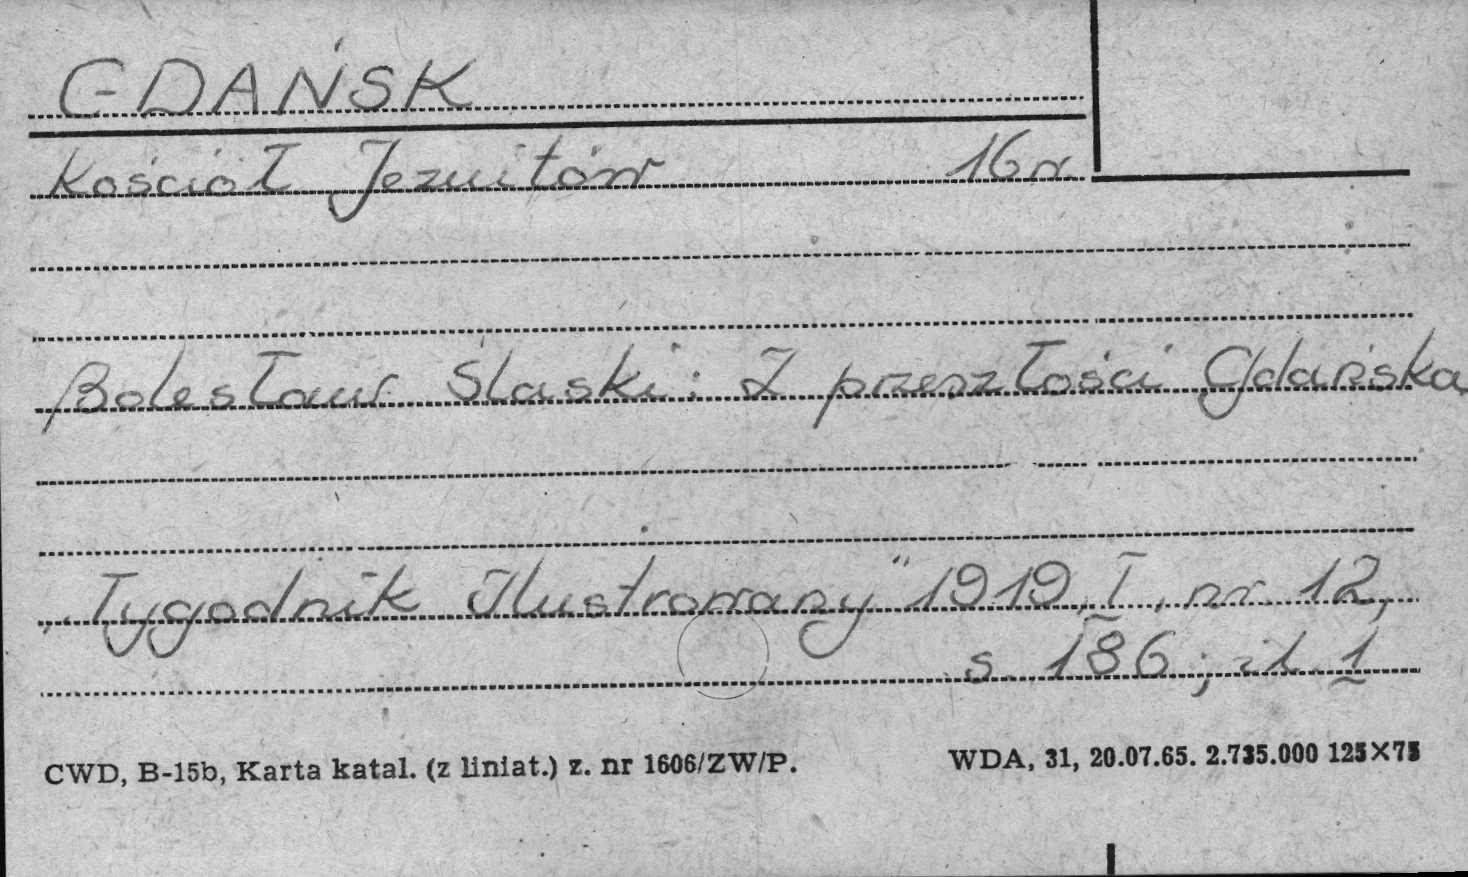 GDAŃSK
Kościół Jezuitów 16 r.
Bolesław Ślaski: Z przeszłości Gdańska
„Tygodnik Ilustrowany" 1919, I, nr 12,
s. 186; il. 1
CWD, B-15b, Karta katal. (z liniat.) z. nr 1606/ZW/P. WDA, 31, 20.07.65. 2.735.000 125×75